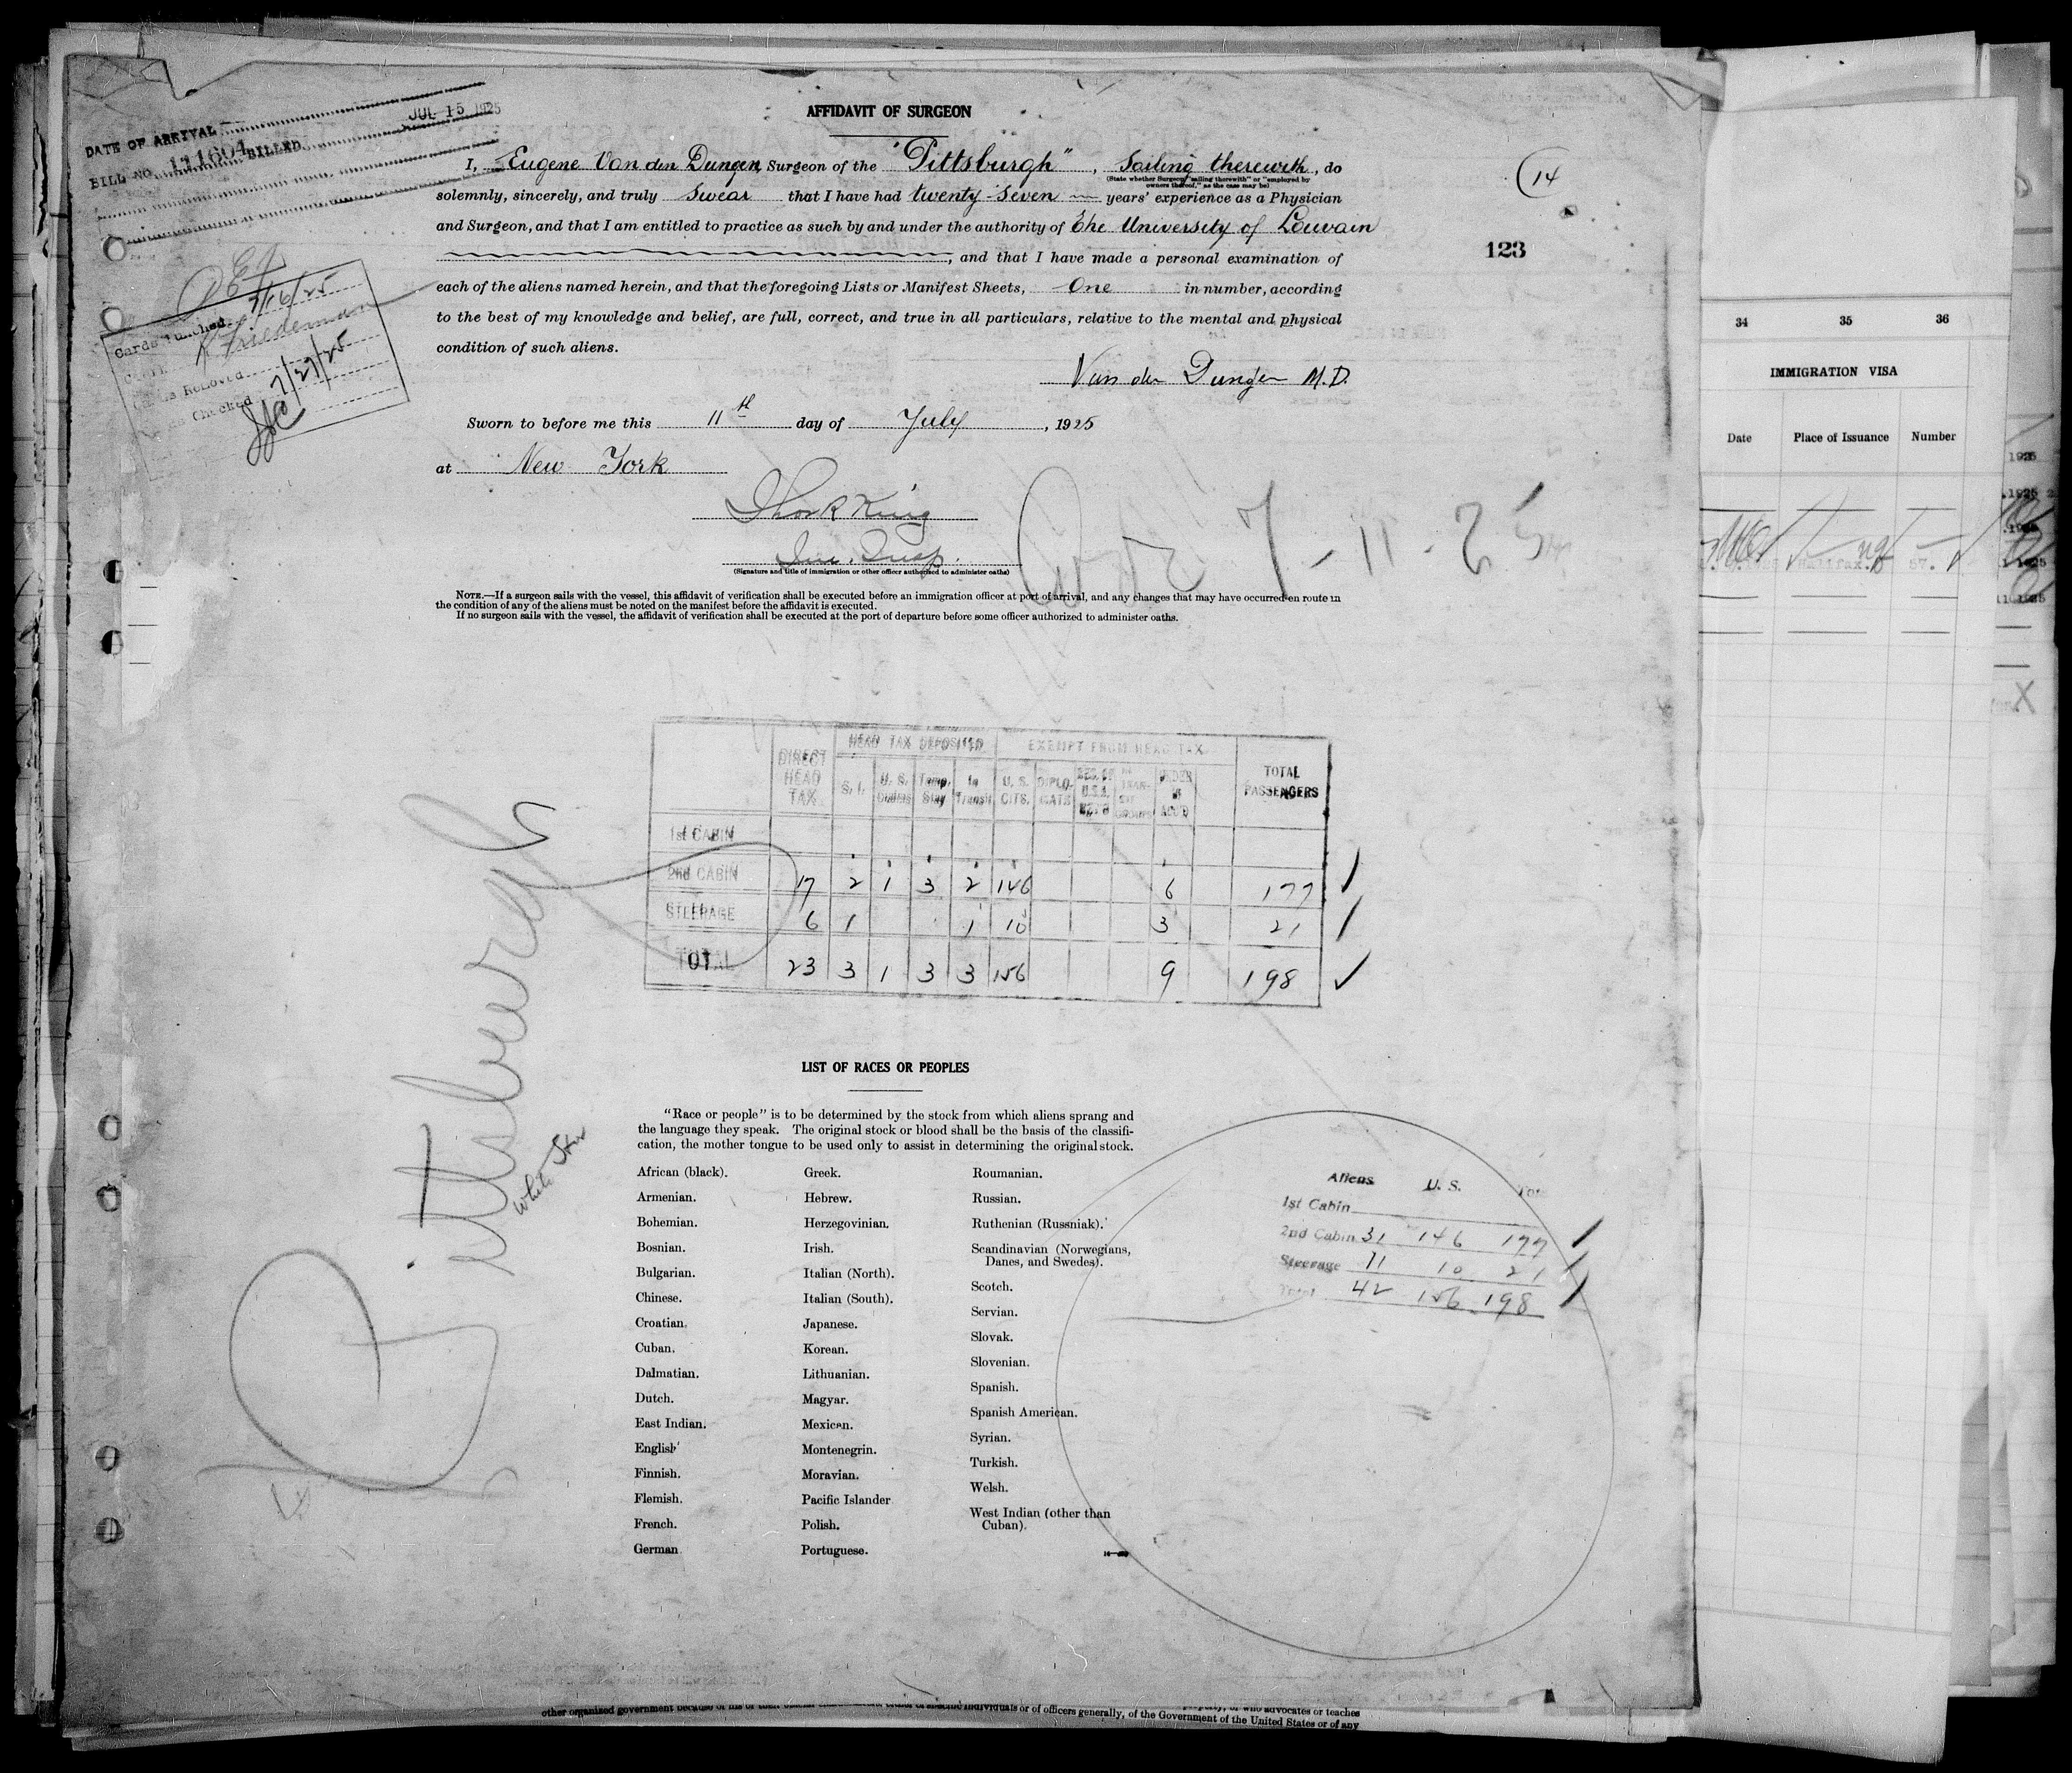 DATE OF ARRIVAL
JUL 15 1925
BILL NO. 111604 BILLED
AFFIDAVIT OF SURGEON
I, Eugene Van den Dungen, Surgeon of the "Pittsburgh", Sailing therewith, do
(State whether Surgeon "sailing therewith" or "employed by
owners thereof," as the case may be)
solemnly, sincerely, and truly swear that I have had twenty-seven years' experience as a Physician
and Surgeon, and that I am entitled to practice as such by and under the authority of The University of Louvain
, and that I have made a personal examination of
each of the aliens named herein, and that the foregoing Lists or Manifest Sheets, One in number, according
to the best of my knowledge and belief, are full, correct, and true in all particulars, relative to the mental and physical
condition of such aliens.
14
123
Cards Punched 7/16/25
Clerk K Friedeman
Cards Removed
Checked 7/27/25
Van den Dungen M.D.
Sworn to before me this 11th day of July, 1925
at New York
King
Imm. Insp.
(Signature and title of immigration or other officer authorized to administer oaths)
7-11-25
NOTE.—If a surgeon sails with the vessel, this affidavit of verification shall be executed before an immigration officer at port of arrival, and any changes that may have occurred en route in
the condition of any of the aliens must be noted on the manifest before the affidavit is executed.
If no surgeon sails with the vessel, the affidavit of verification shall be executed at the port of departure before some officer authorized to administer oaths.
DIRECT HEAD TAX
HEAD TAX DEPOSITED
EXEMPT FROM HEAD TAX
S. I.
Temp. Stay
In Transit
U. S. CITS.
DIPLOMATS
UNDER 16 ACC'D
TOTAL PASSENGERS
1st CABIN
2nd CABIN 17 2 1 3 2 146 6 177
STEERAGE 6 1 1 10 3 21
TOTAL 23 3 1 3 3 156 9 198
Pittsburgh
White Star
LIST OF RACES OR PEOPLES
"Race or people" is to be determined by the stock from which aliens sprang and
the language they speak. The original stock or blood shall be the basis of the classifi-
cation, the mother tongue to be used only to assist in determining the original stock.
African (black).
Armenian.
Bohemian.
Bosnian.
Bulgarian.
Chinese.
Croatian.
Cuban.
Dalmatian.
Dutch.
East Indian.
English
Finnish.
Flemish.
French.
German
Greek.
Hebrew.
Herzegovinian.
Irish.
Italian (North).
Italian (South).
Japanese.
Korean.
Lithuanian.
Magyar.
Mexican.
Montenegrin.
Moravian.
Pacific Islander
Polish.
Portuguese.
Roumanian.
Russian.
Ruthenian (Russniak).
Scandinavian (Norwegians,
Danes, and Swedes).
Scotch.
Servian.
Slovak.
Slovenian.
Spanish.
Spanish American.
Syrian.
Turkish.
Welsh.
West Indian (other than
Cuban).
Aliens U. S. Tot
1st Cabin
2nd Cabin 31 146 177
Steerage 11 10 21
Total 42 156 198
34 35 36
IMMIGRATION VISA
Date Place of Issuance Number
Halifax. 57.
1925
1925
1925
1925
other organized government because of his or their official character
specific individuals or of officers generally, of the Government of the United States or of any
or who advocates or teaches